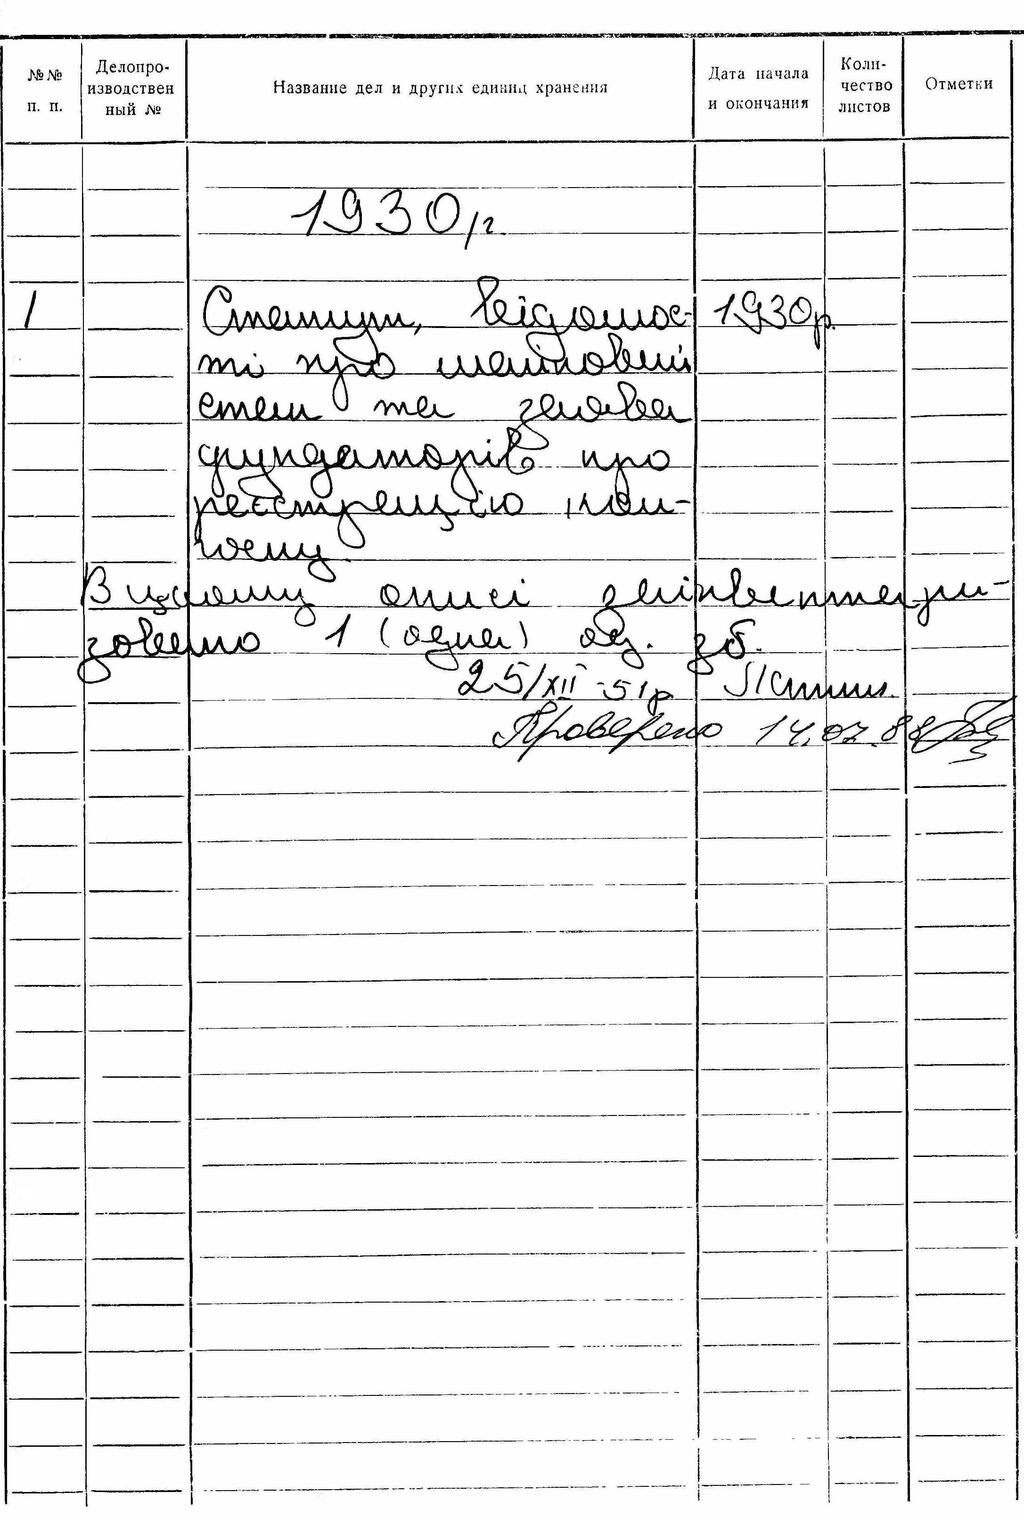 №№ п. п.
Делопро-
изводствен
ный №
Название дел и других единиц хранения
Дата начала
и окончания
Коли-
чество
листов
Отметки
1930/г.
1 Статут, відомос- 1930р.
ті про майновий
стан та заява
фундаторів про
реєстрацію
В цьому описі заінвентари-
зовано 1 (одна) од. зб.
25/XII-51р.
Проверено 14.07.88